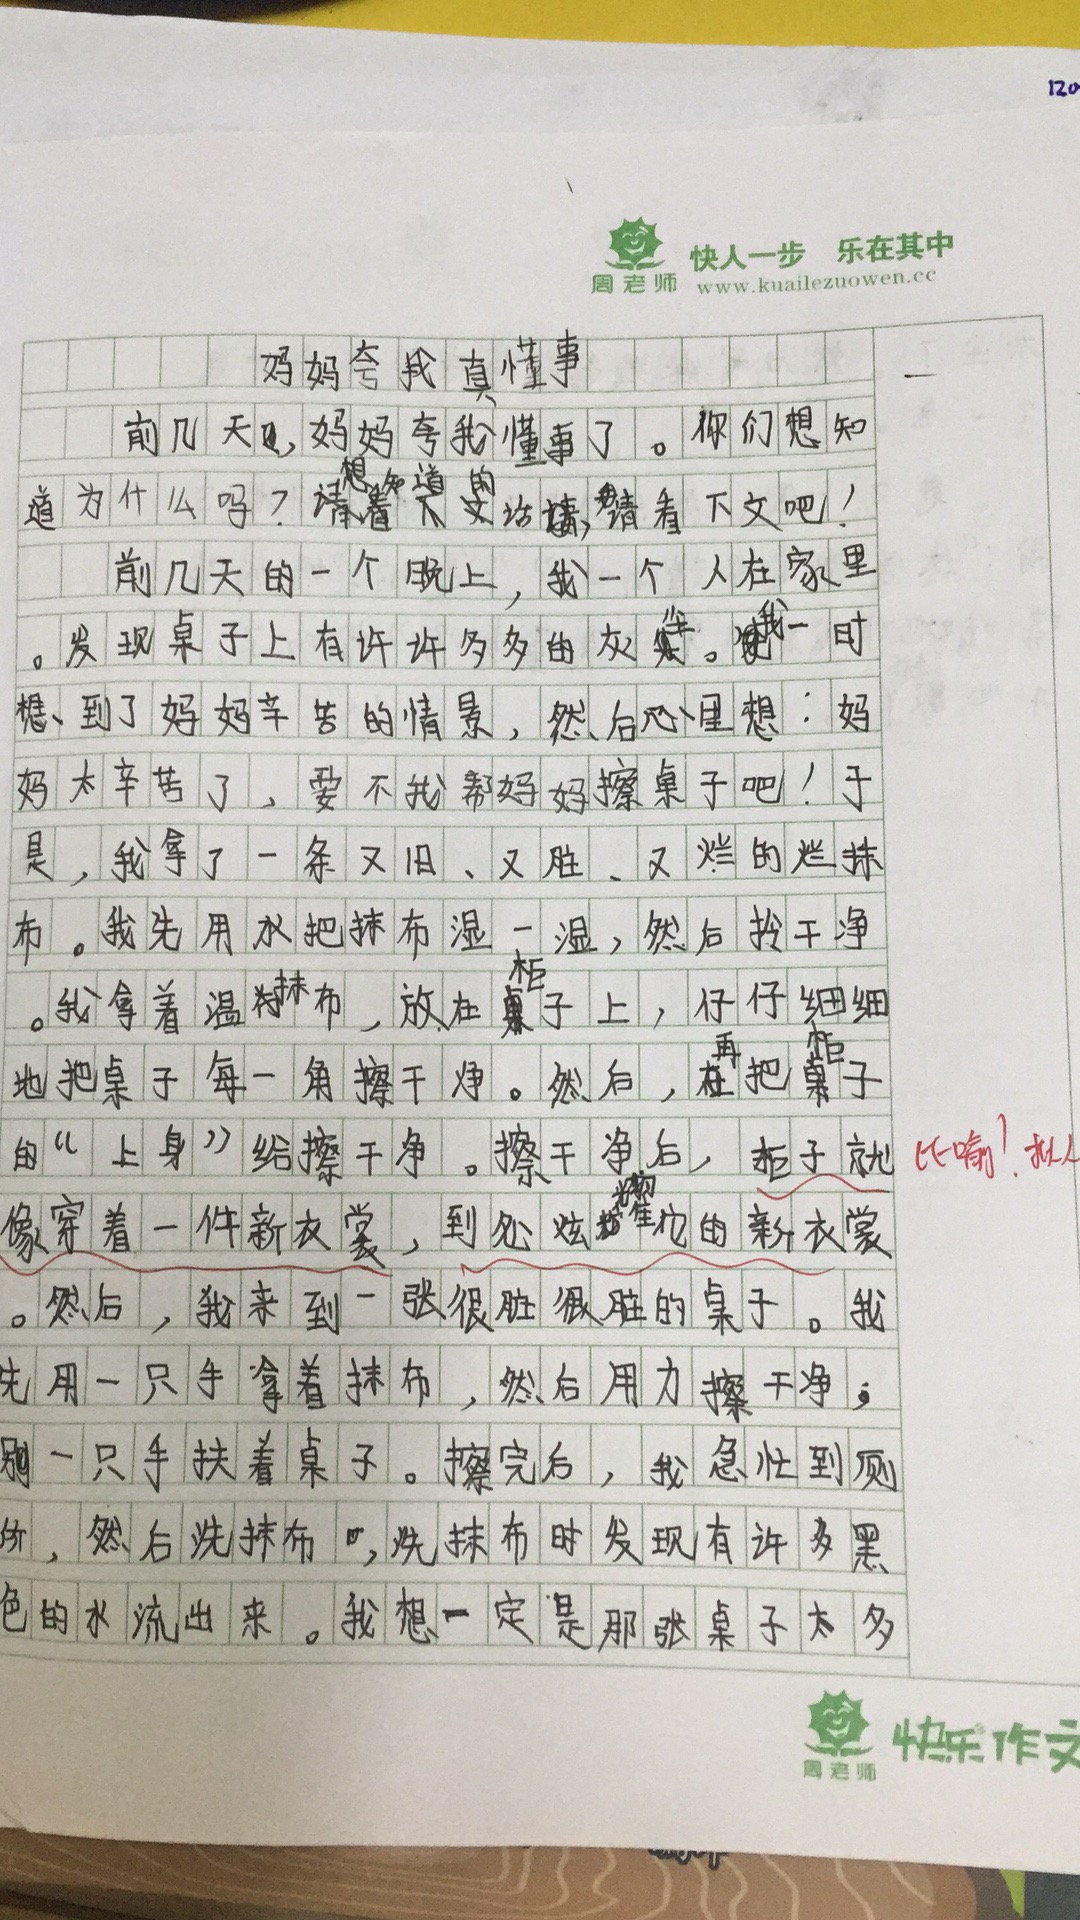 120
快人一步 乐在其中
周老师 www.kuailezuowen.cc
妈妈夸我真懂事
前几天,妈妈夸我懂事了。你们想知
道为什么吗?想知道的话,请看下文吧!
前几天的一个晚上,我一个人在家里
。发现桌子上有许许多多的灰尘。我一时
想到了妈妈辛苦的情景,然后心里想:妈
妈太辛苦了,要不我帮妈妈擦桌子吧!于
是,我拿了一条又旧、又脏、又烂的烂抹
布。我先用水把抹布湿一湿,然后拎干净
。我拿着湿抹布,放在柜子上,仔仔细细
地把桌子每一角擦干净。然后,再把柜子
的“上身”给擦干净。擦干净后,柜子就
比喻!拟人
像穿着一件新衣裳,到处炫耀它的新衣裳
。然后,我来到一张很脏很脏的桌子。我
先用一只手拿着抹布,然后用力擦干净;
别一只手扶着桌子。擦完后,我急忙到厕
所,然后洗抹布,洗抹布时发现有许多黑
色的水流出来。我想一定是那张桌子太多
周老师 快乐作文